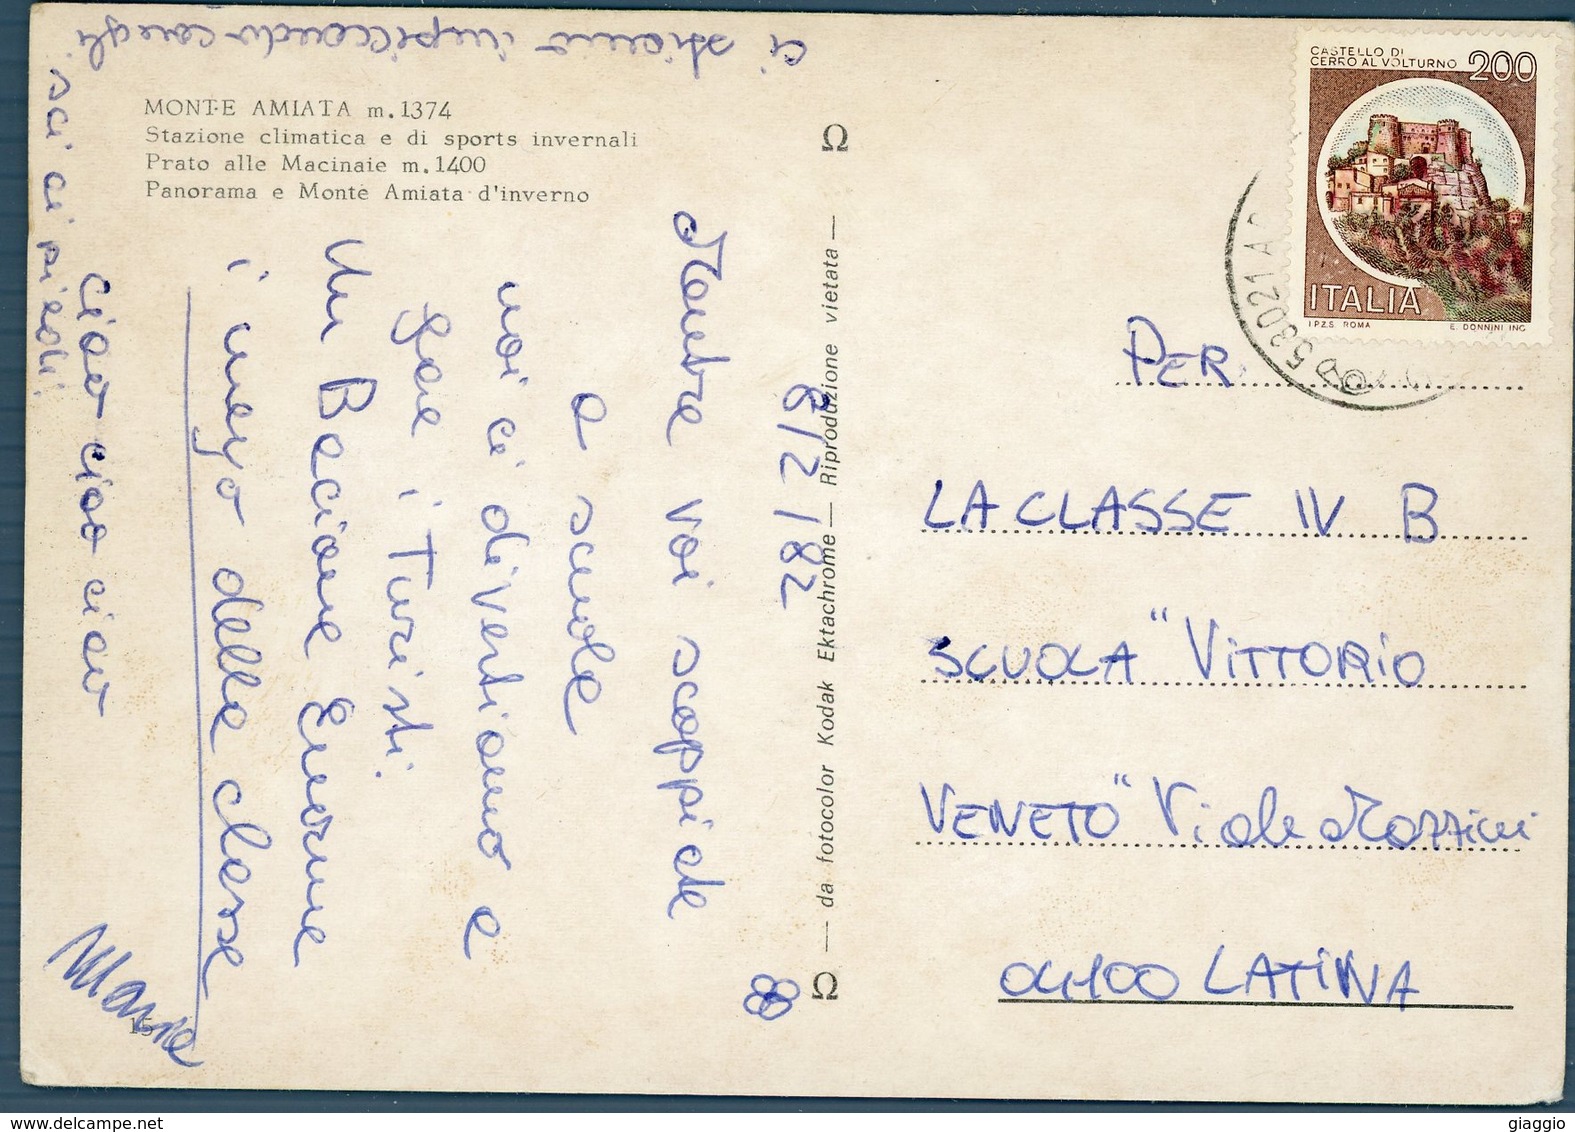 MONTE AMIATA m. 1374
Stazione climatica e di sports invernali
Prato alle Macinaie m. 1400
Panorama e Monte Amiata d'inverno
8/2/82
Mentre voi scoppiate
a scuole
noi ci divertiamo e
fare i Turisti.
Un Bacione Enorme
i mezzo delle classe
Ciao ciao ciao
Maria
ci stiamo impiccando cogli
sci ai piedi!
15
Ω
— da fotocolor Kodak Ektachrome — Riproduzione vietata —
Ω
CASTELLO DI
CERRO AL VOLTURNO 200
ITALIA
I.P.Z.S. ROMA E. DONNINI INC.
53021 A
PER:
LA CLASSE IV B
SCUOLA "VITTORIO
VENETO" Viale Mazzini
04100 LATINA
delcampe.net
giaggio